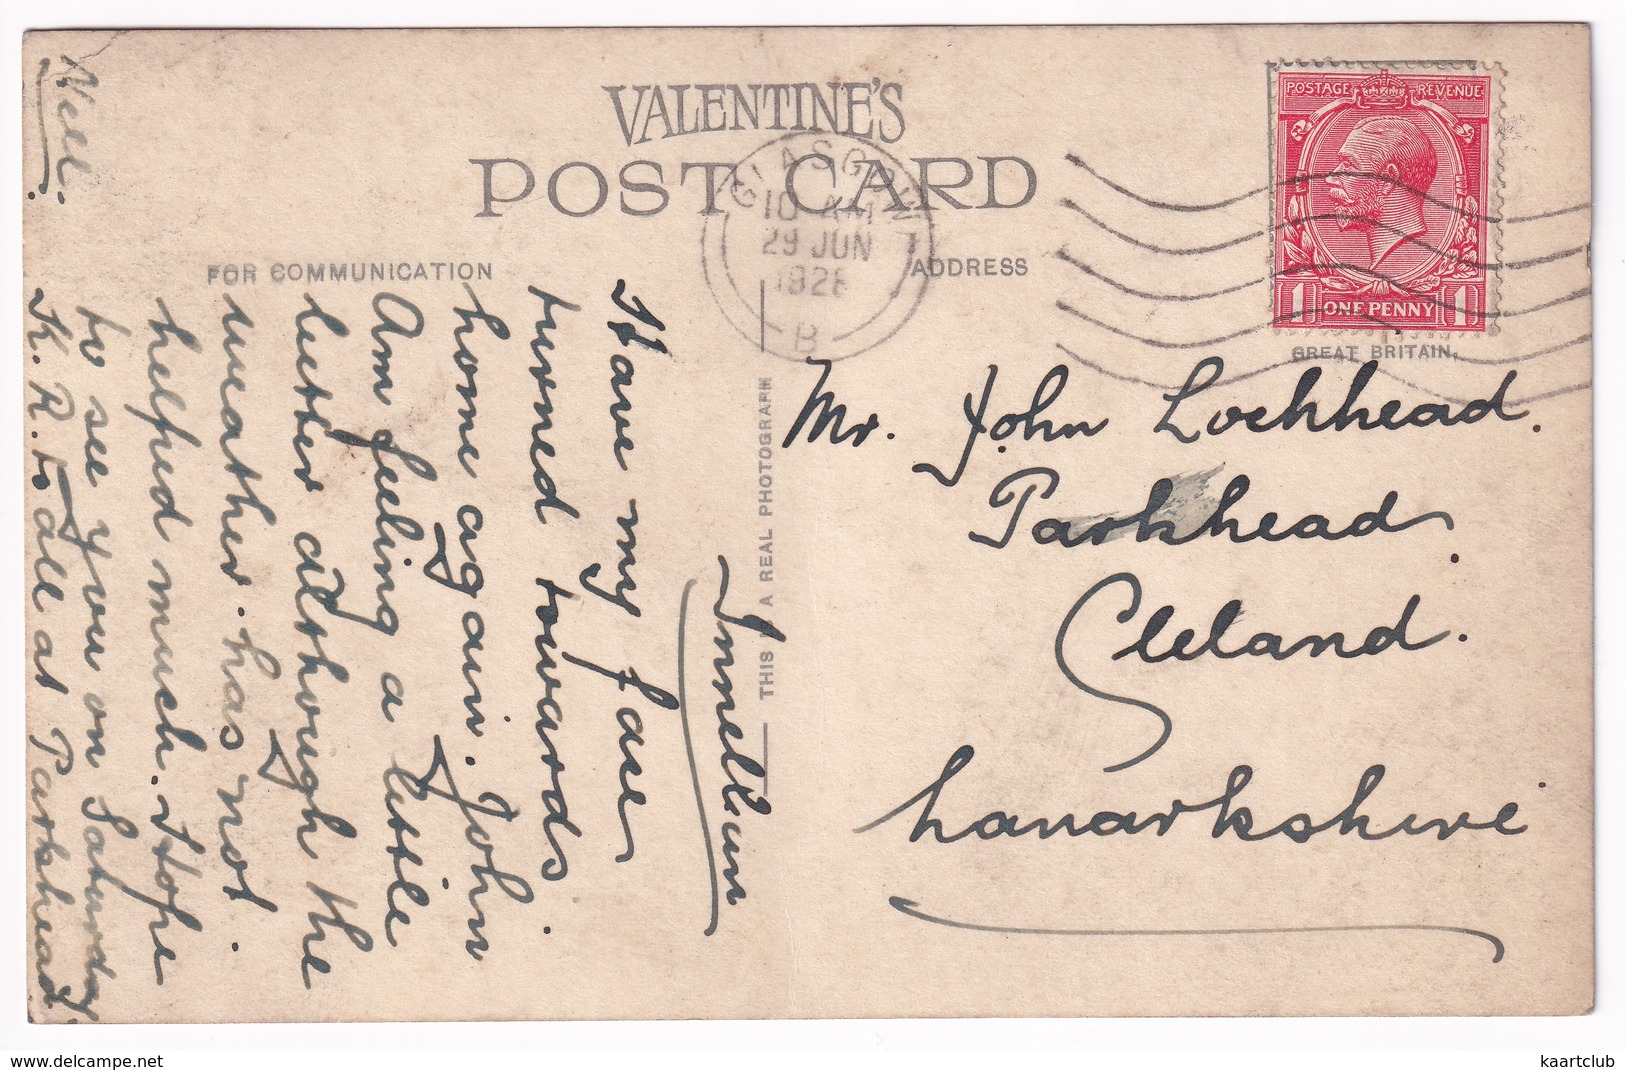 VALENTINE'S
POST CARD
FOR COMMUNICATION
ADDRESS
GLASGOW
10 AM
29 JUN
192
B
POSTAGE REVENUE
1 ONE PENNY 1
GREAT BRITAIN.
THIS IS A REAL PHOTOGRAPH
Innellan
Have my face
turned towards
home again. John
Am feeling a little
better although the
weather has not
helped much. Hope
to see you on Saturday,
K. R. to all at Parkhead
Nell.
Mr. John Lochhead.
Parkhead
Cleland.
Lanarkshire
www.delcampe.net
kaartclub